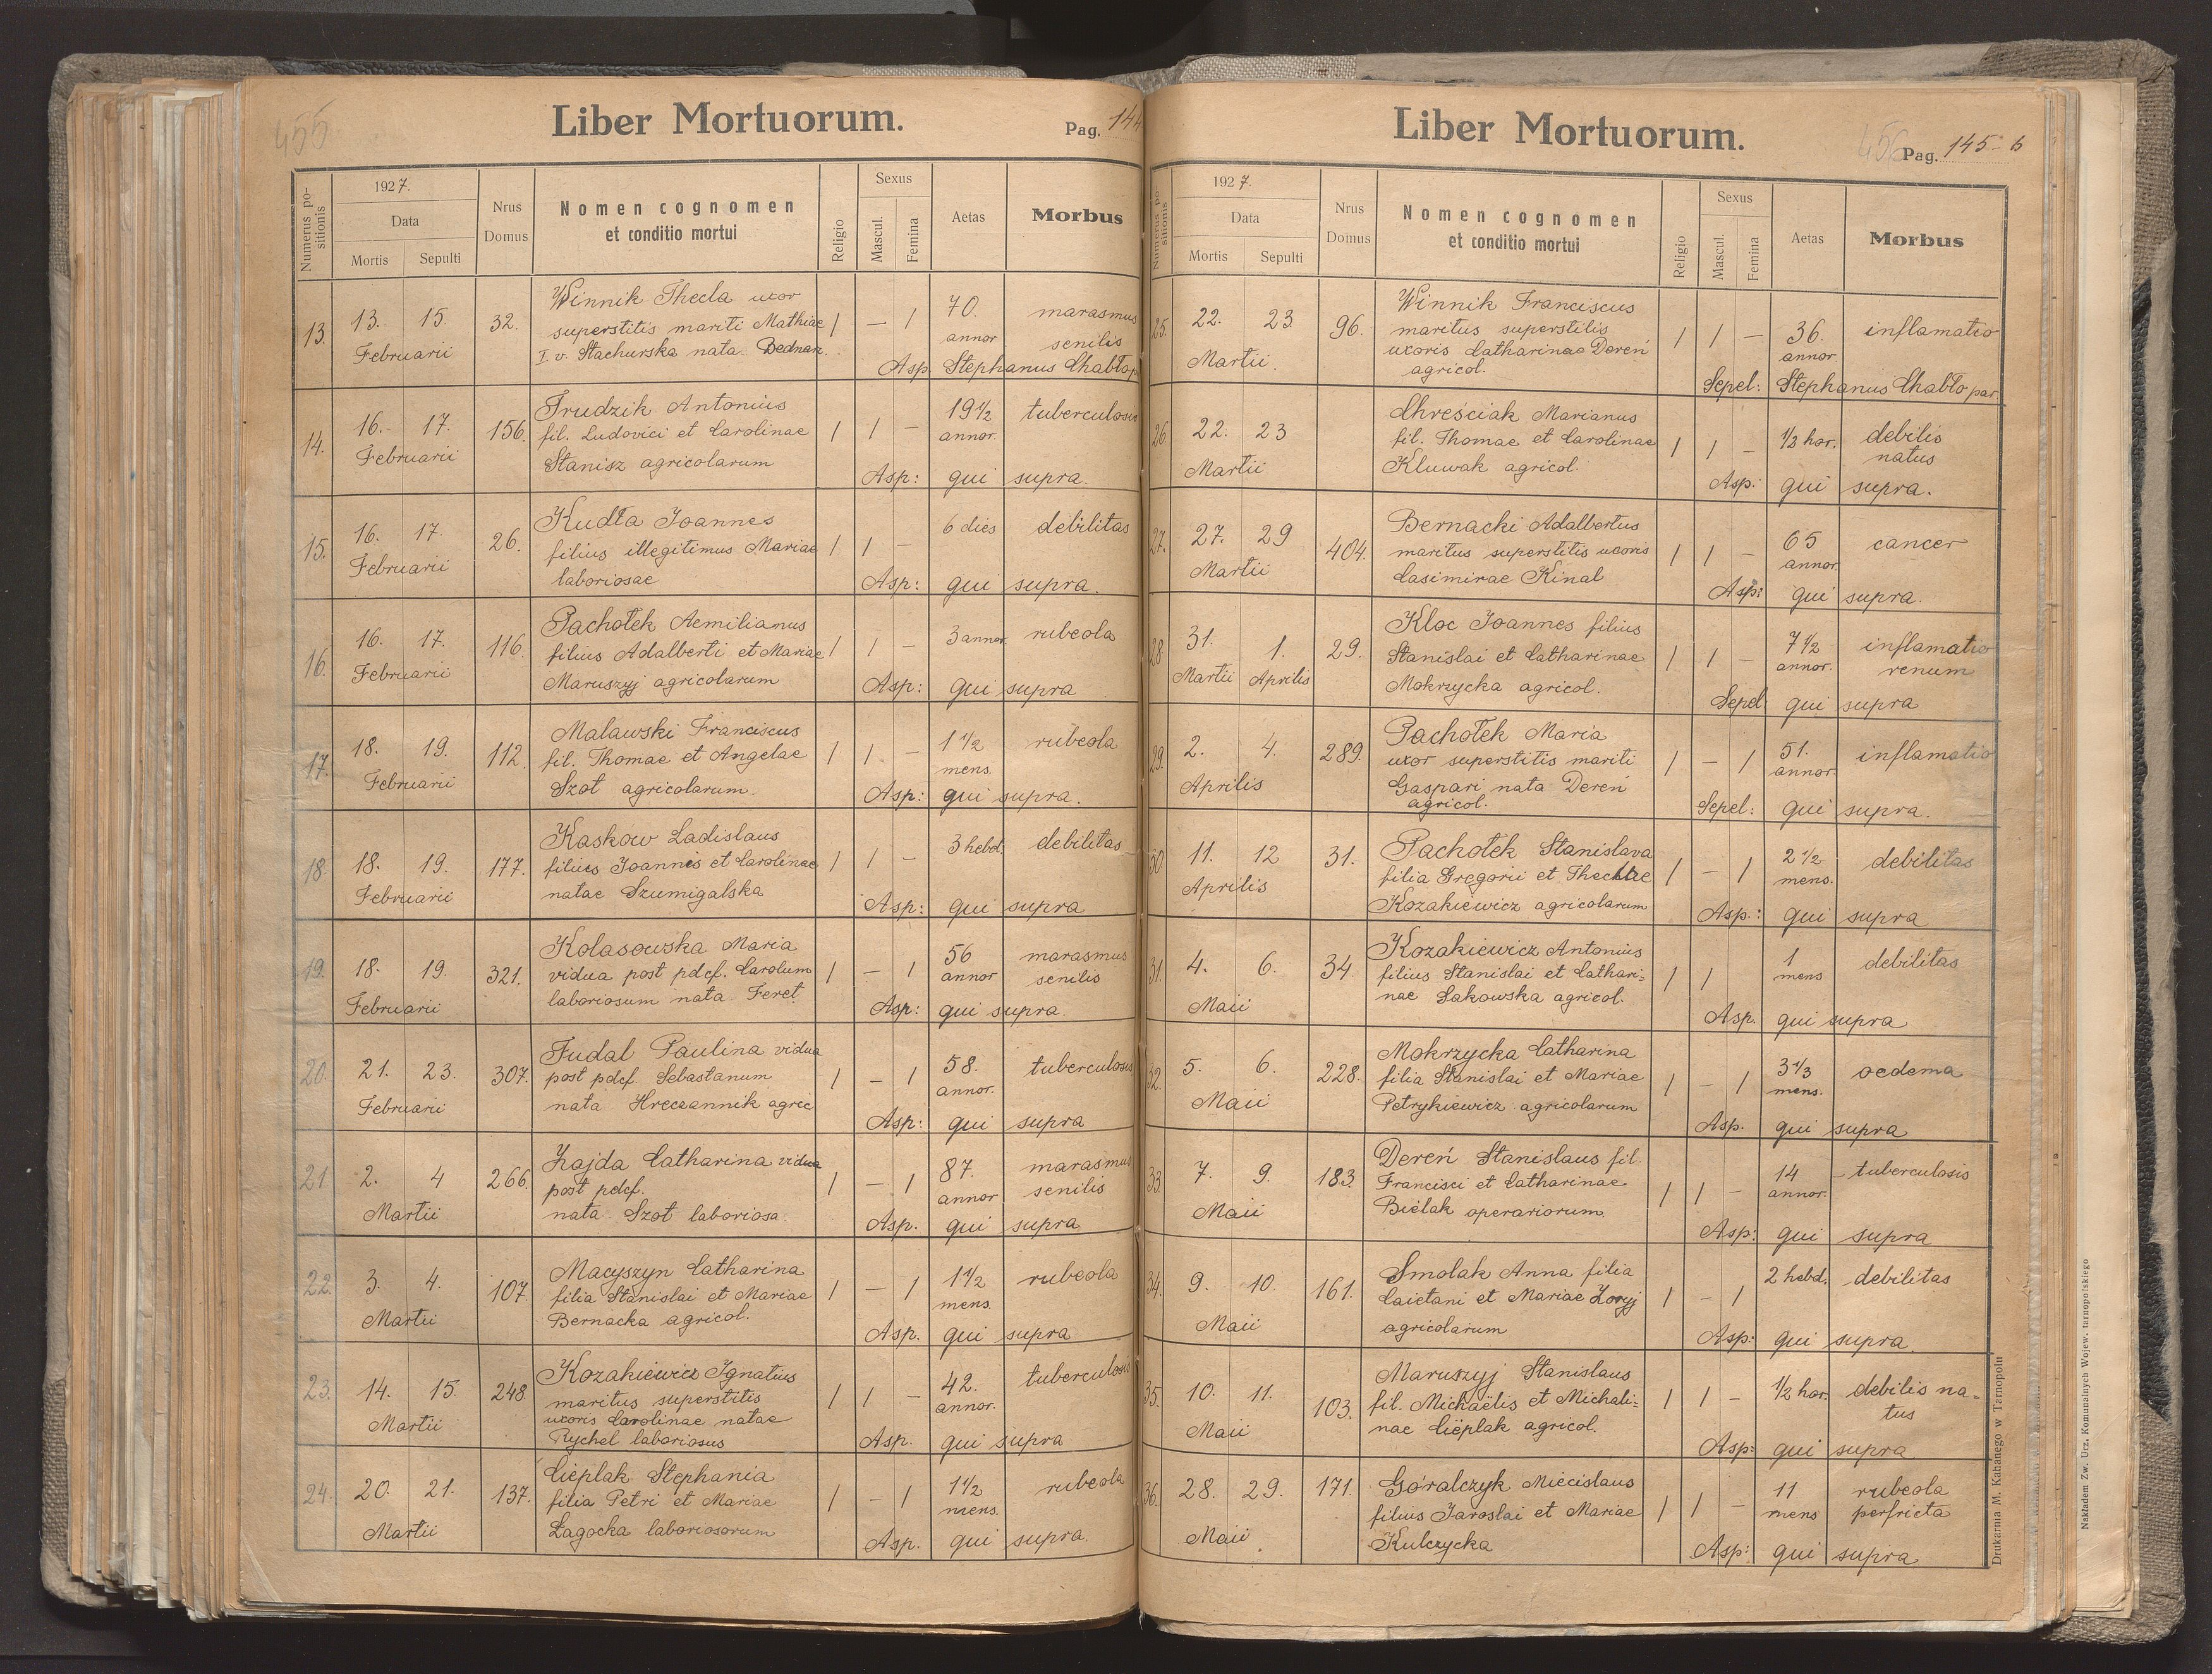 455
Liber Mortuorum.
Pag. 144
Numerus positionis
1927.
Data
Mortis
Sepulti
Nrus Domus
Nomen cognomen
et conditio mortui
Religio
Sexus
Mascul.
Femina
Aetas
Morbus
13. 13. 15. Februarii 32. Winnik Thecla uxor 1 — 1 70. annor marasmus senilis
superstitis mariti Mathiae
I. v. Stachurska nata Bednarz
Asp Stephanus Chabło p
14. 16. 17. Februarii 156. Trudzik Antonius 1 1 — 19 1/2 annor. tuberculosis
fil. Ludovici et Carolinae
Stanisz agricolarum
Asp: qui supra.
15. 16. 17. Februarii 26. Kudła Joannes 1 1 — 6 dies debilitas
filius illegitimus Mariae
laboriosae
Asp: qui supra.
16. 16. 17. Februarii 116. Pachołek Aemilianus 1 1 — 3 annor. rubeola
filius Adalberti et Mariae
Maruszyj agricolarum
Asp: qui supra
17. 18. 19. Februarii 112. Malawski Franciscus 1 1 — 1 1/2 mens. rubeola
fil. Thomae et Angelae
Szot agricolarum.
Asp: qui supra.
18. 18. 19. Februarii 177. Kaskow Ladislaus 1 1 — 3 hebd. debilitas
filius Joannis et Carolinae
natae Szumigalska
Asp: qui supra
19. 18. 19. Februarii 321. Kolasowska Maria 1 — 1 56 annor marasmus senilis
vidua post pdcf. Carolum
laboriosum nata Feret
Asp: qui supra.
20. 21. 23. Februarii 307. Fudal Paulina vidua 1 — 1 58. annor. tuberculosis
post pdcf. Sebastanum
nata Hreczannik agric
Asp: qui supra
21 2. 4 Martii 266. Zajda Catharina vidua 1 — 1 87. annor marasmus senilis
post pdcf.
nata Szot laboriosa
Asp. qui supra
22. 3. 4. Martii 107. Macyszyn Catharina 1 — 1 1 1/2 mens. rubeola
filia Stanislai et Mariae
Bernacka agricol.
Asp. qui supra
23. 14. 15. Martii 248. Kozakiewicz Ignatius 1 1 — 42. annor. tuberculosis
maritus superstitis
uxoris Carolinae natae
Rychel laboriosus
Asp. qui supra
24. 20. 21. Martii 137. Cieplak Stephania 1 — 1 1 1/2 mens. rubeola
filia Petri et Mariae
Łagocka laboriosorum
Asp. qui supra.
Liber Mortuorum.
456
Pag. 145
Numerus positionis
1927.
Data
Mortis
Sepulti
Nrus Domus
Nomen cognomen
et conditio mortui
Religio
Sexus
Mascul.
Femina
Aetas
Morbus
25. 22. 23. Martii. 96. Winnik Franciscus 1 1 — 36. annor. inflamatio
maritus superstitis
uxoris Catharinae Dereń
agricol.
Sepel: Stephanus Chabło par
26. 22. 23 Martii Chreściak Marianus 1 1 — 1/2 hor. debilis natus
fil. Thomae et Carolinae
Kluwak agricol.
Asp: qui supra.
27. 27. 29 Martii 404. Bernacki Adalbertus 1 1 — 65 annor cancer
maritus superstitis uxoris
Casimirae Kinal
Asp: qui supra.
28 31. Martii 1. Aprilis 29. Kloc Joannes filius 1 1 — 7 1/2 annor. inflamatio renum
Stanislai et Catharinae
Mokrzycka agricol.
Sepel: qui supra
29. 2. 4. Aprilis 289. Pachołek Maria 1 — 1 51. annor. inflamatio
uxor superstitis mariti
Gaspari nata Dereń
agricol.
Sepel: qui supra.
30 11. 12 Aprilis 31. Pachołek Stanislava 1 — 1 2 1/2 mens. debilitas
filia Gregorii et Theclae
Kozakiewicz agricolarum
Asp.: qui supra
31. 4. 6. Maii 34. Kozakiewicz Antonius 1 1 1 mens debilitas
filius Stanislai et Cathari=
nae Sakowska agricol.
Asp. qui supra
32. 5. 6. Maii 228. Mokrzycka Catharina 1 — 1 3 1/3 mens. oedema
filia Stanislai et Mariae
Petrykiewicz agricolarum
Asp. qui supra
33. 7. 9. Maii 183. Dereń Stanislaus fil. 1 1 — 14 annor. tuberculosis
Francisci et Catharinae
Bielak operariorum.
Asp: qui supra
34. 9. 10. Maii 161. Smolak Anna filia 1 — 1 2 hebd. debilitas
Caietani et Mariae Zoryj
agricolarum
Asp: qui supra.
35. 10. 11. Maii 103. Maruszyj Stanislaus 1 1 — 1/2 hor. debilis na=
fil. Michaëlis et Michali= tus
nae Cieplak agricol.
Asp: qui supra
36. 28. 29. Maii 171. Góralczyk Miecislaus 1 1 — 11 mens rubeola perfricta
filius Jaroslai et Mariae
Kulczycka
Asp: qui supra
Drukarnia M. Kahanego w Tarnopolu
Nakładem Zw. Urz. Komunalnych Wojew. tarnopolskiego